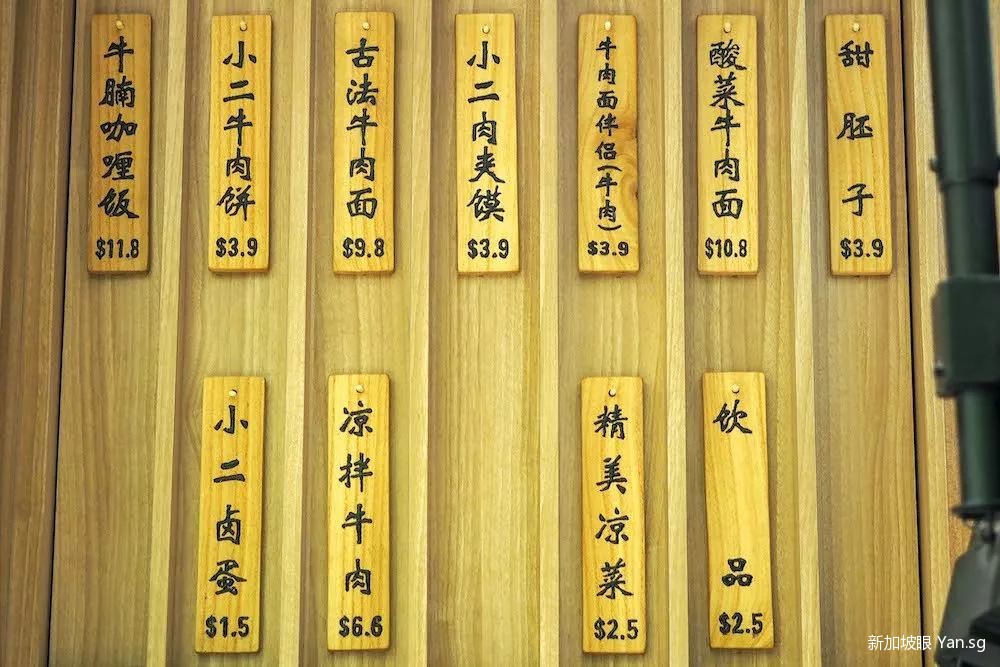 牛腩咖喱饭
$11.8
小二牛肉饼
$3.9
古法牛肉面
$9.8
小二肉夹馍
$3.9
牛肉面伴侣(牛肉)
$3.9
酸菜牛肉面
$10.8
甜胚子
$3.9
小二卤蛋
$1.5
凉拌牛肉
$6.6
精美凉菜
$2.5
饮品
$2.5
新加坡眼 Yan.sg